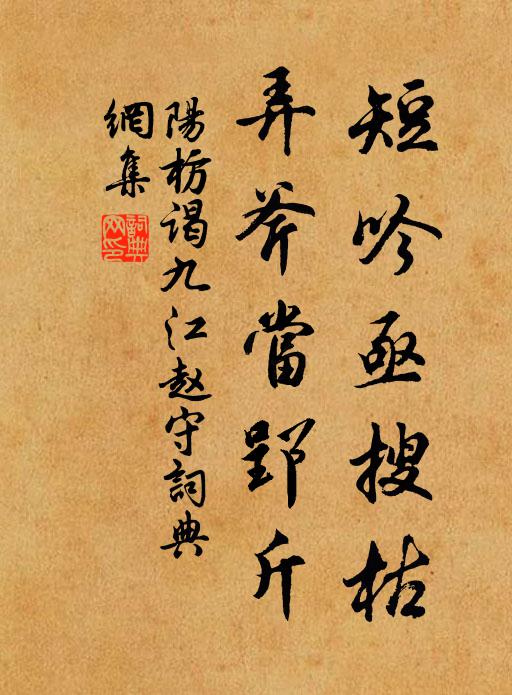 短吟亟搜枯
弄斧當郢斤
陽枋谒九江赵守詞典
網集
詞典
网印